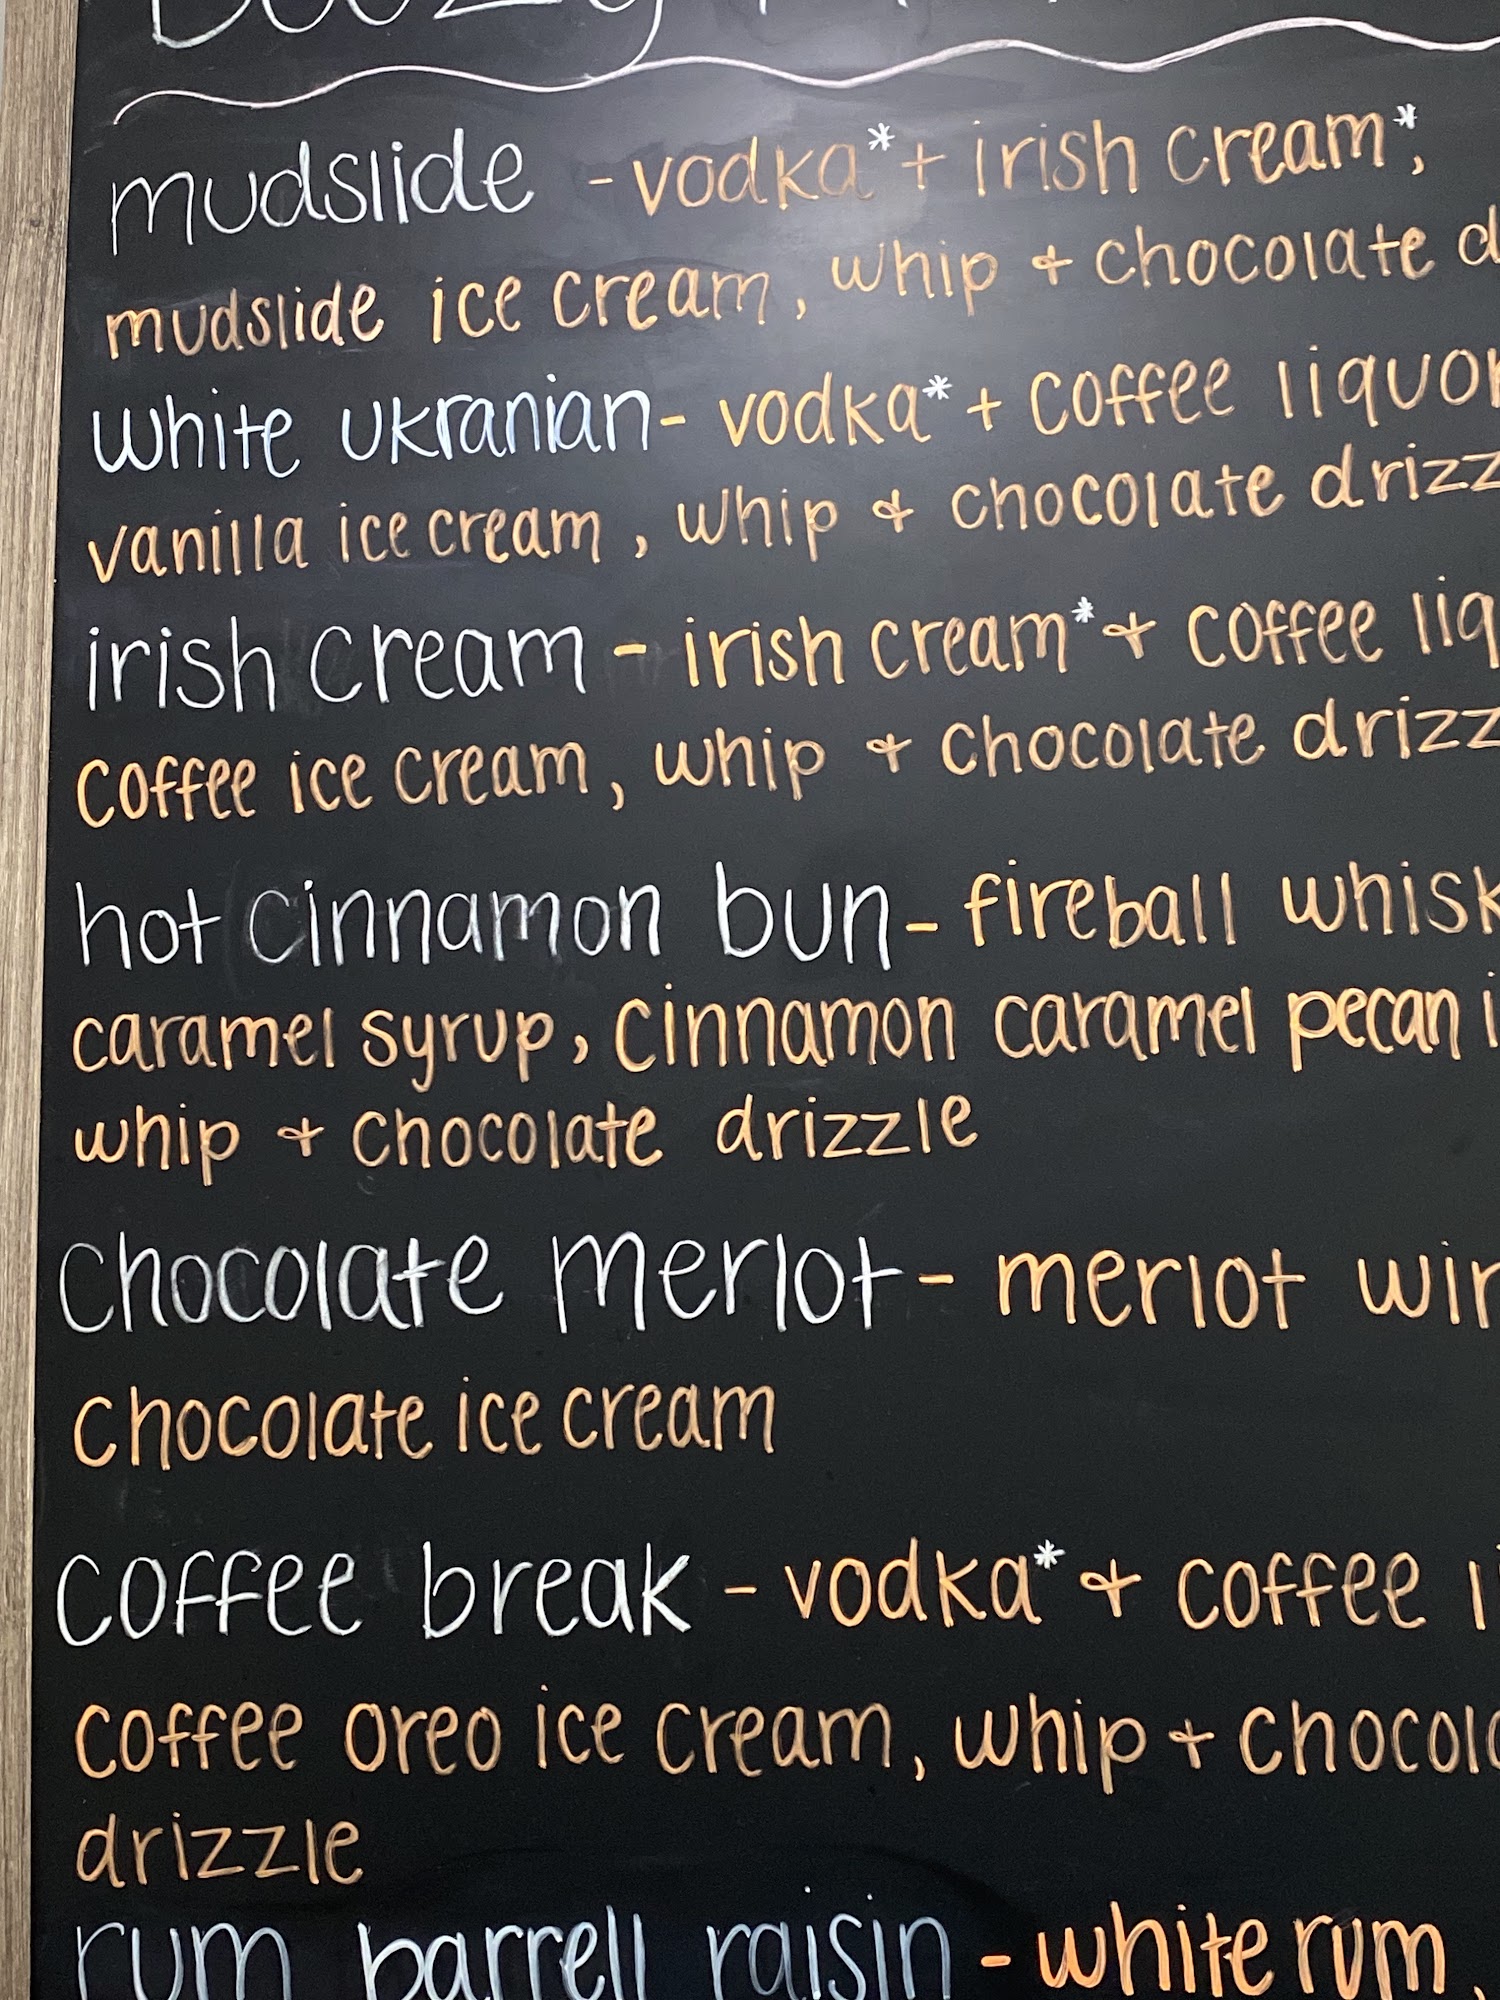 Boozy
mudslide - vodka* + irish cream*,
mudslide ice cream, whip + chocolate
white ukranian - vodka* + coffee liquor
vanilla ice cream, whip + chocolate drizz
irish cream - irish cream* + coffee liq
coffee ice cream, whip + chocolate drizz
hot cinnamon bun - fireball whisk
caramel syrup, cinnamon caramel pecan i
whip + chocolate drizzle
chocolate merlot - merlot win
chocolate ice cream
coffee break - vodka* + coffee li
coffee oreo ice cream, whip + chocola
drizzle
rum barrell raisin - white rum,